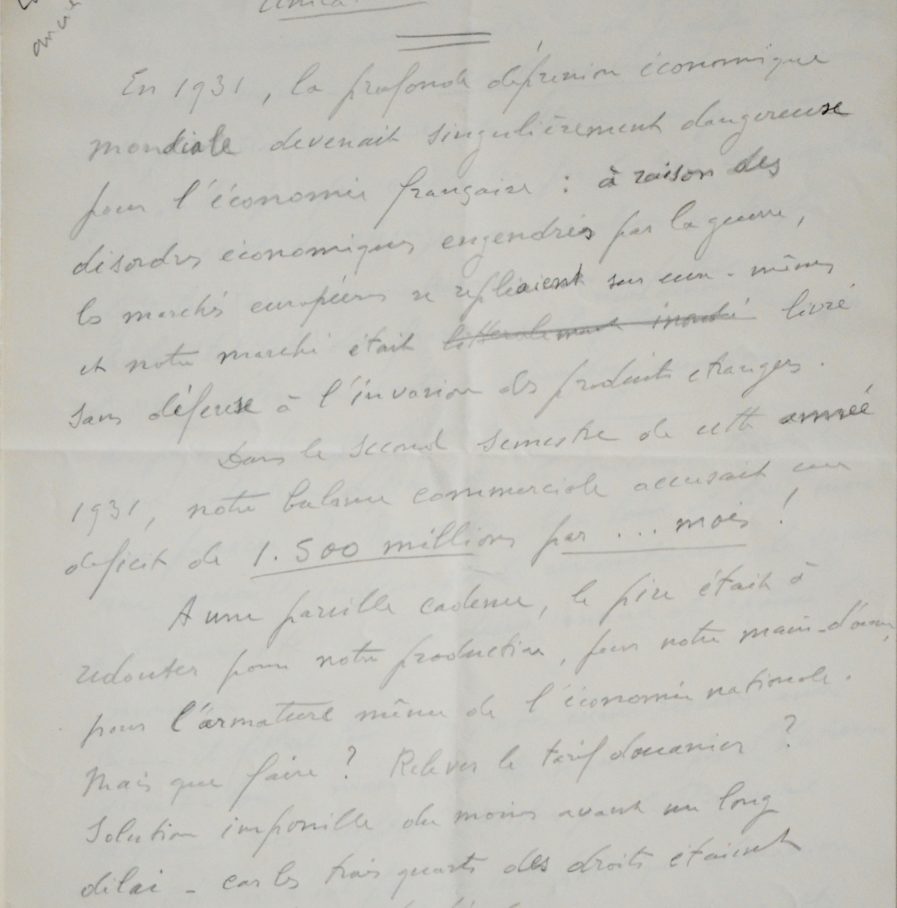 En 1931, la profonde dépression économique
mondiale devenait singulièrement dangereuse
pour l'économie française : à raison des
désordres économiques engendrés par la guerre,
les marchés européens se repliaient sur eux-mêmes
et notre marché était littéralement inondé livré
sans défense à l'invasion des produits étrangers.
Dans le second semestre de cette année
1931, notre balance commerciale accusait un
déficit de 1.500 millions par ... mois !
A une pareille cadence, le pire était à
redouter pour notre production, pour notre main-d'œuvre,
pour l'armature même de l'économie nationale.
Mais que faire ? Relever le tarif douanier ?
Solution impossible du moins avant un long
délai - car les trois quarts des droits étaient